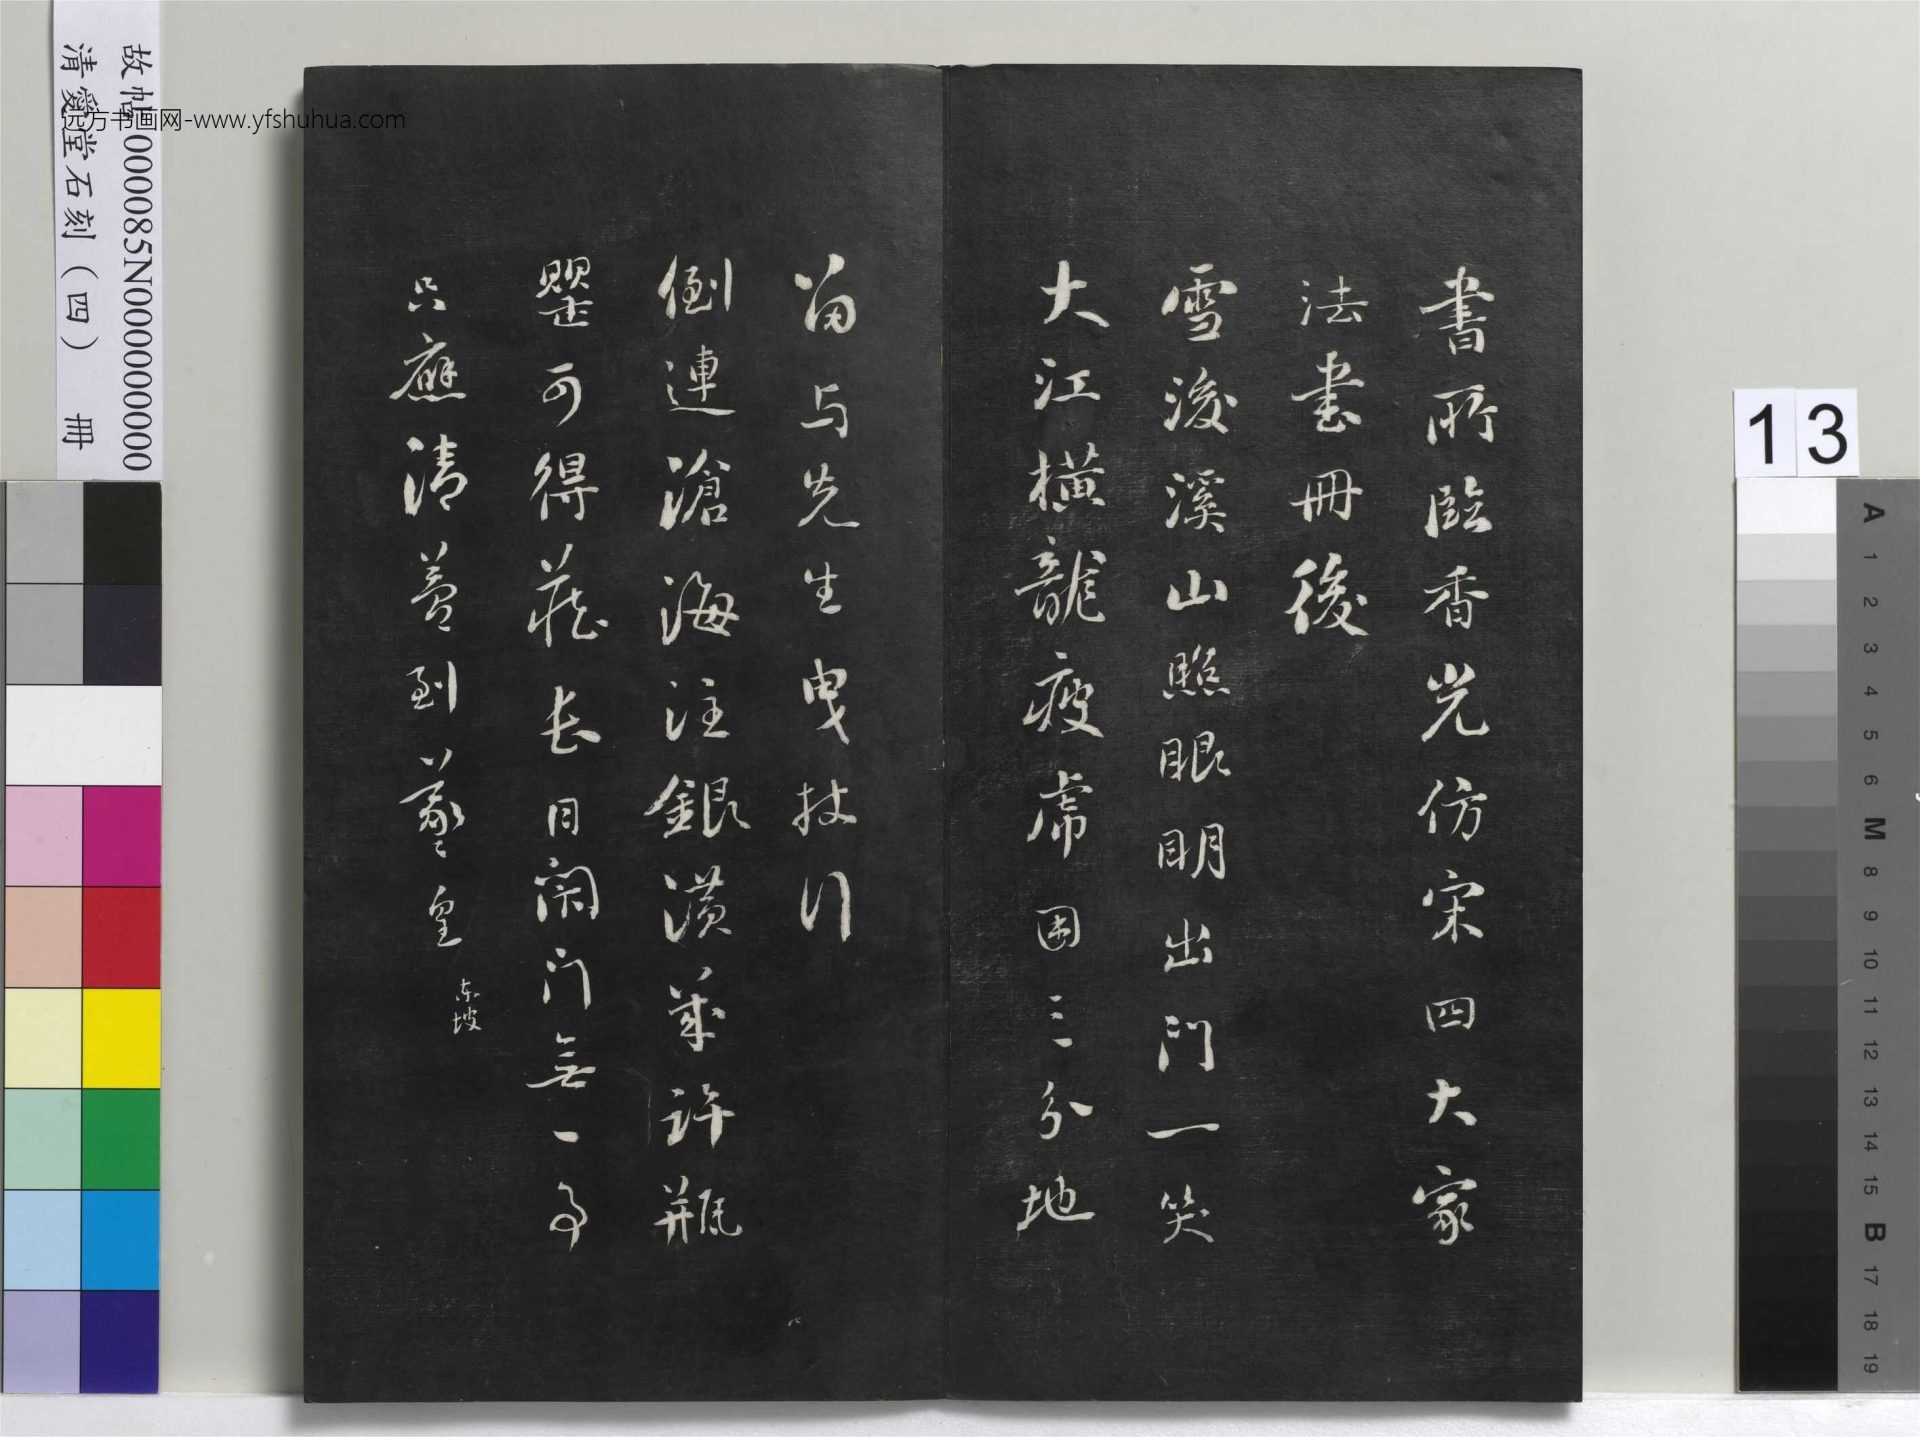 故帖000085N000000000
清愛堂石刻（四） 冊
远方书画网-www.yfshuhua.com
13
書所臨香光仿宋四大家
法書冊後
雪後溪山照眼明出門一笑
大江橫龍疲虎困三分地
留与先生曳杖行
倒連滄海注銀潢幾許瓶
罌可得藏長日閑門無一事
只應清夢到羲皇
东坡
A 1 2 3 4 5 6 M 8 9 10 11 12 13 14 15 B 17 18 19